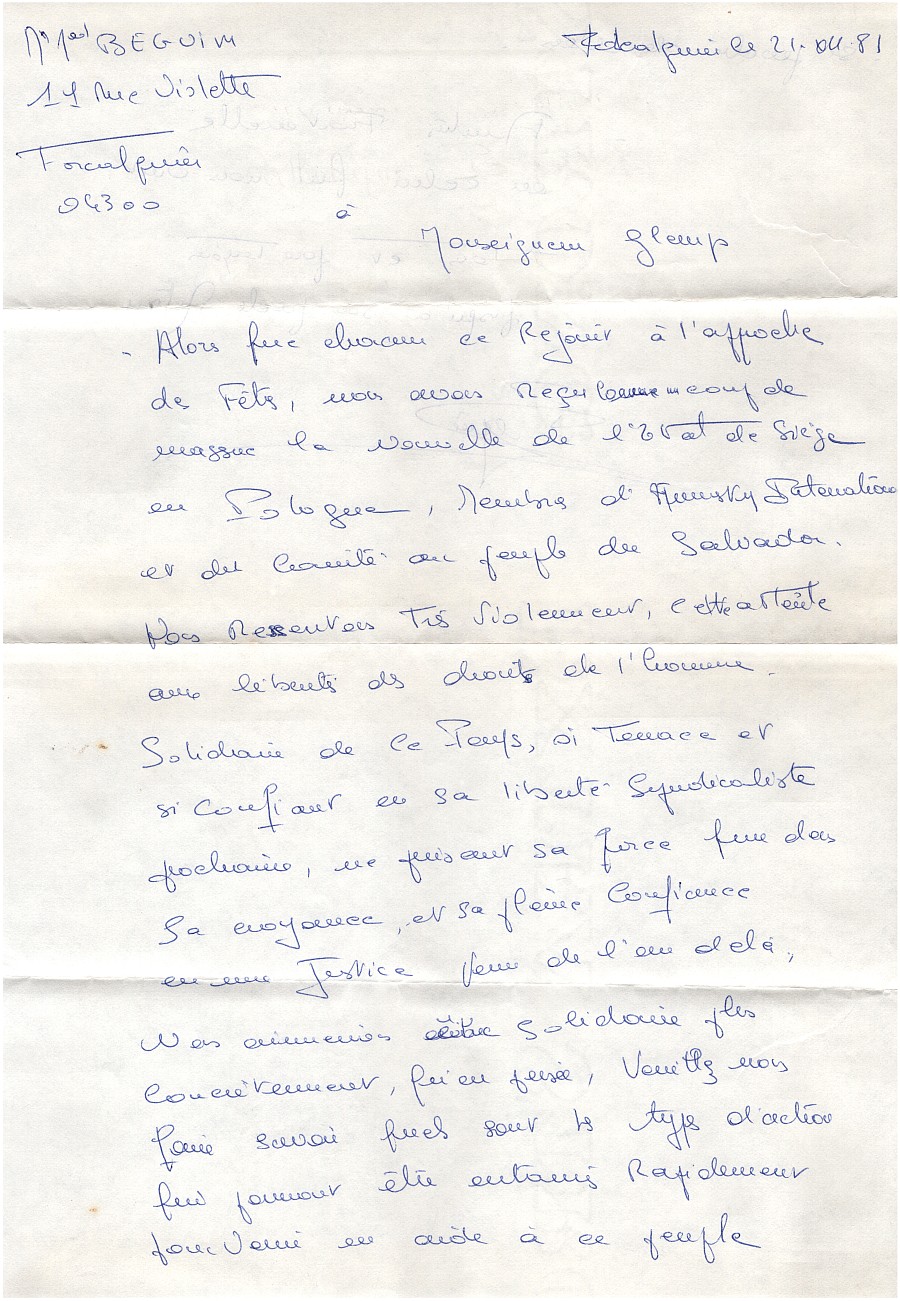 BEGUIM
Forcalquier le 21. XII. 81
14 Rue Violette
Forcalquier
04300
à
Monseigneur Glemp
- Alors que chacun ce Rejouit à l'approche
des Fêtes, nous avons Reçu comme un coup de
massue la nouvelle de l'Etat de Siège
en Pologne, Membres d'Amnesty Internationa
et du Comité au peuple du Salvador.
Nous Ressentons Très Violemment, cette atteinte
aux libertés des droits de l'homme.
Solidaire de ce Pays, si Tenace et
si Confiant en sa liberté Syndicaliste
prochaine, ne puisant sa force que dans
Sa croyance, et sa pleine Confiance
en une Justice venue de l'au delà,
Nous aimerions être Solidaire plus
Concrètement, qu'en pensée, Veuillez nous
faire savoir quels sont les types d'action
qui pourront être entamés Rapidement
pour Venir en aide à ce peuple